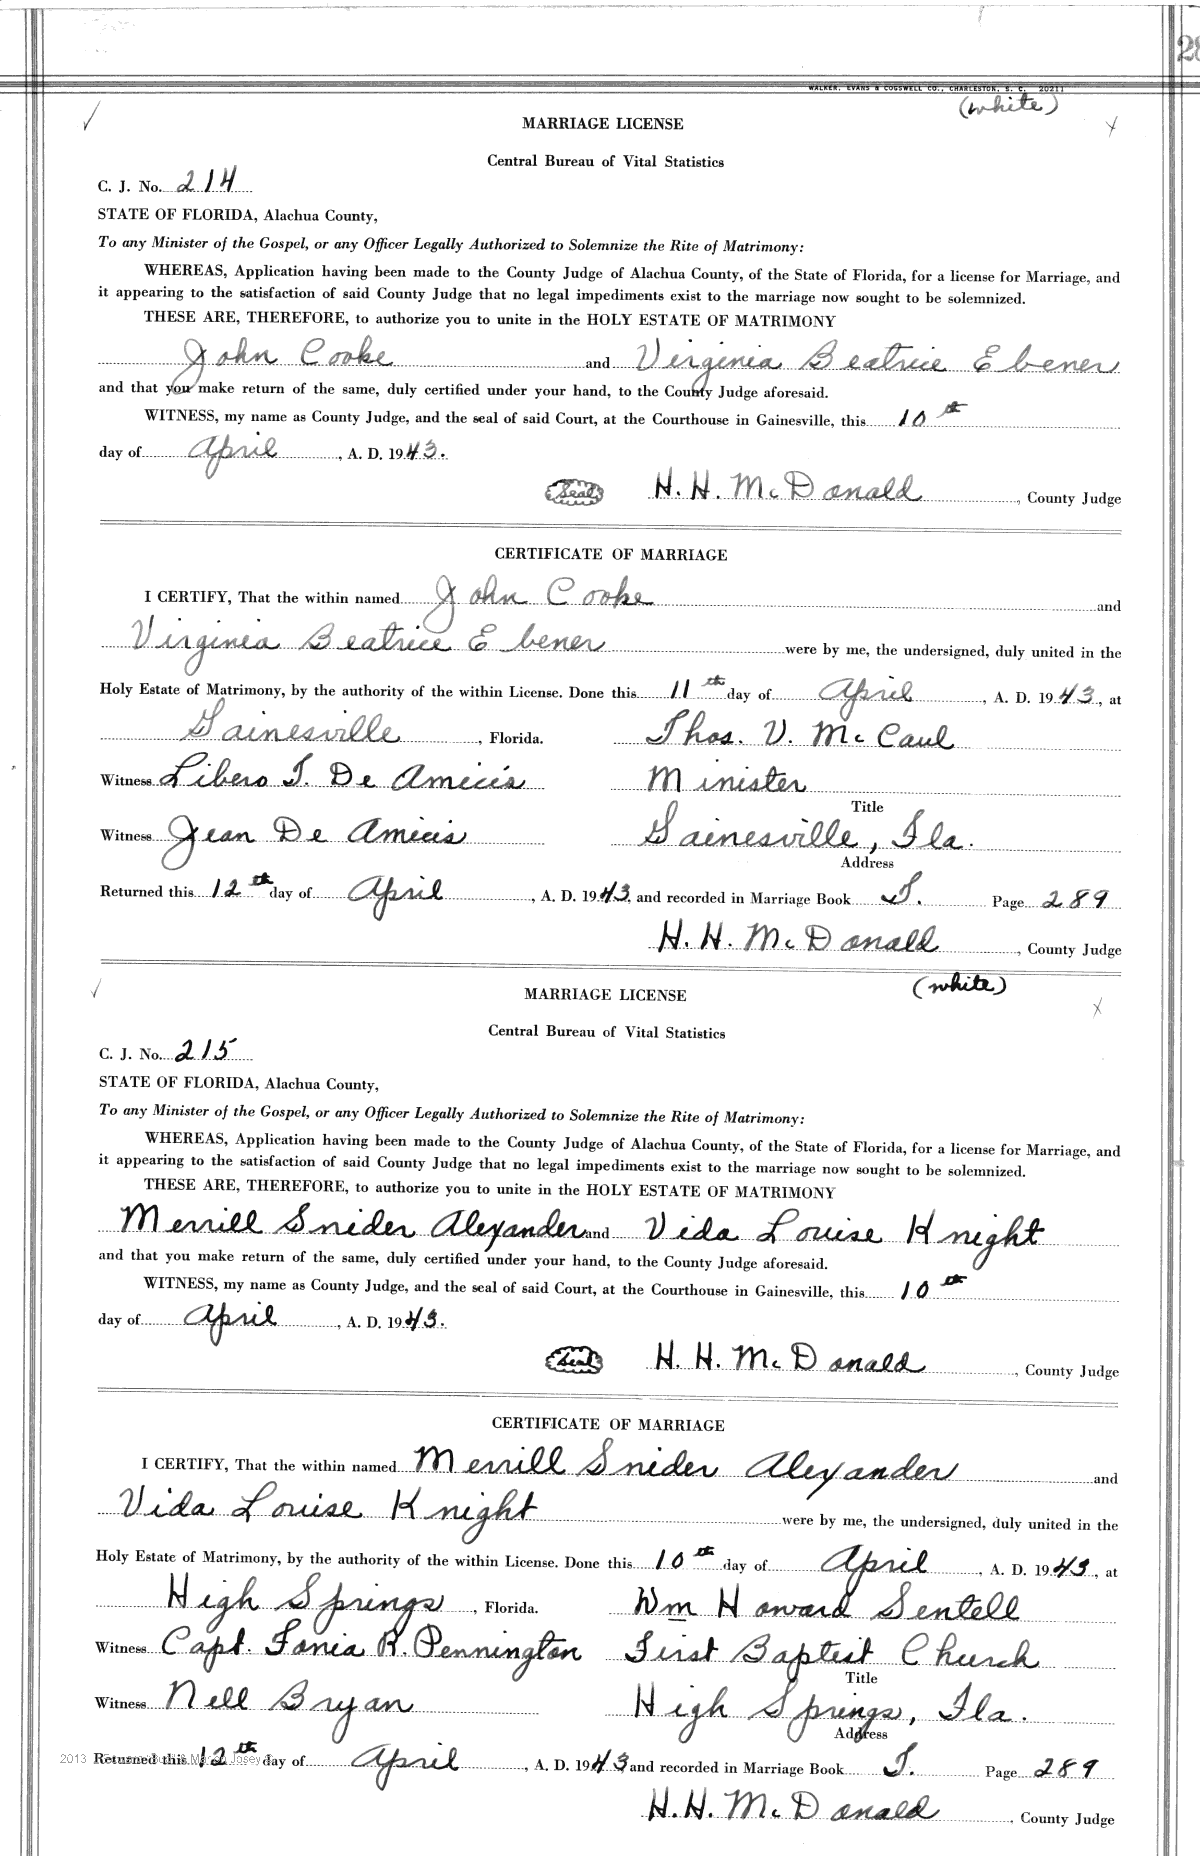 28
WALKER, EVANS & COGSWELL CO., CHARLESTON, S. C. 20211
(white)
MARRIAGE LICENSE
Central Bureau of Vital Statistics
C. J. No. 214
STATE OF FLORIDA, Alachua County,
To any Minister of the Gospel, or any Officer Legally Authorized to Solemnize the Rite of Matrimony:
WHEREAS, Application having been made to the County Judge of Alachua County, of the State of Florida, for a license for Marriage, and
it appearing to the satisfaction of said County Judge that no legal impediments exist to the marriage now sought to be solemnized.
THESE ARE, THEREFORE, to authorize you to unite in the HOLY ESTATE OF MATRIMONY
John Cooke and Virginia Beatrice Ebener
and that you make return of the same, duly certified under your hand, to the County Judge aforesaid.
WITNESS, my name as County Judge, and the seal of said Court, at the Courthouse in Gainesville, this 10th
day of April, A. D. 1943.
Seal H. H. McDonald, County Judge
CERTIFICATE OF MARRIAGE
I CERTIFY, That the within named John Cooke and
Virginia Beatrice Ebener were by me, the undersigned, duly united in the
Holy Estate of Matrimony, by the authority of the within License. Done this 11th day of April, A. D. 1943, at
Gainesville, Florida. Thos. V. McCaul
Witness Libero T. De Amicis Minister
Title
Witness Jean De Amicis Gainesville, Fla.
Address
Returned this 12th day of April, A. D. 1943 and recorded in Marriage Book T. Page 289
H. H. McDonald, County Judge
(white)
MARRIAGE LICENSE
Central Bureau of Vital Statistics
C. J. No. 215
STATE OF FLORIDA, Alachua County,
To any Minister of the Gospel, or any Officer Legally Authorized to Solemnize the Rite of Matrimony:
WHEREAS, Application having been made to the County Judge of Alachua County, of the State of Florida, for a license for Marriage, and
it appearing to the satisfaction of said County Judge that no legal impediments exist to the marriage now sought to be solemnized.
THESE ARE, THEREFORE, to authorize you to unite in the HOLY ESTATE OF MATRIMONY
Merrill Snider Alexander and Vida Louise Knight
and that you make return of the same, duly certified under your hand, to the County Judge aforesaid.
WITNESS, my name as County Judge, and the seal of said Court, at the Courthouse in Gainesville, this 10th
day of April, A. D. 1943.
Seal H. H. McDonald, County Judge
CERTIFICATE OF MARRIAGE
I CERTIFY, That the within named Merrill Snider Alexander and
Vida Louise Knight were by me, the undersigned, duly united in the
Holy Estate of Matrimony, by the authority of the within License. Done this 10th day of April, A. D. 1943, at
High Springs, Florida. Wm Howard Sentell
Witness Capt. Fonia R. Pennington First Baptist Church
Title
Witness Nell Bryan High Springs, Fla.
Address
2013 Returned this 12th day of April, A. D. 1943 and recorded in Marriage Book T. Page 289
H. H. McDonald, County Judge